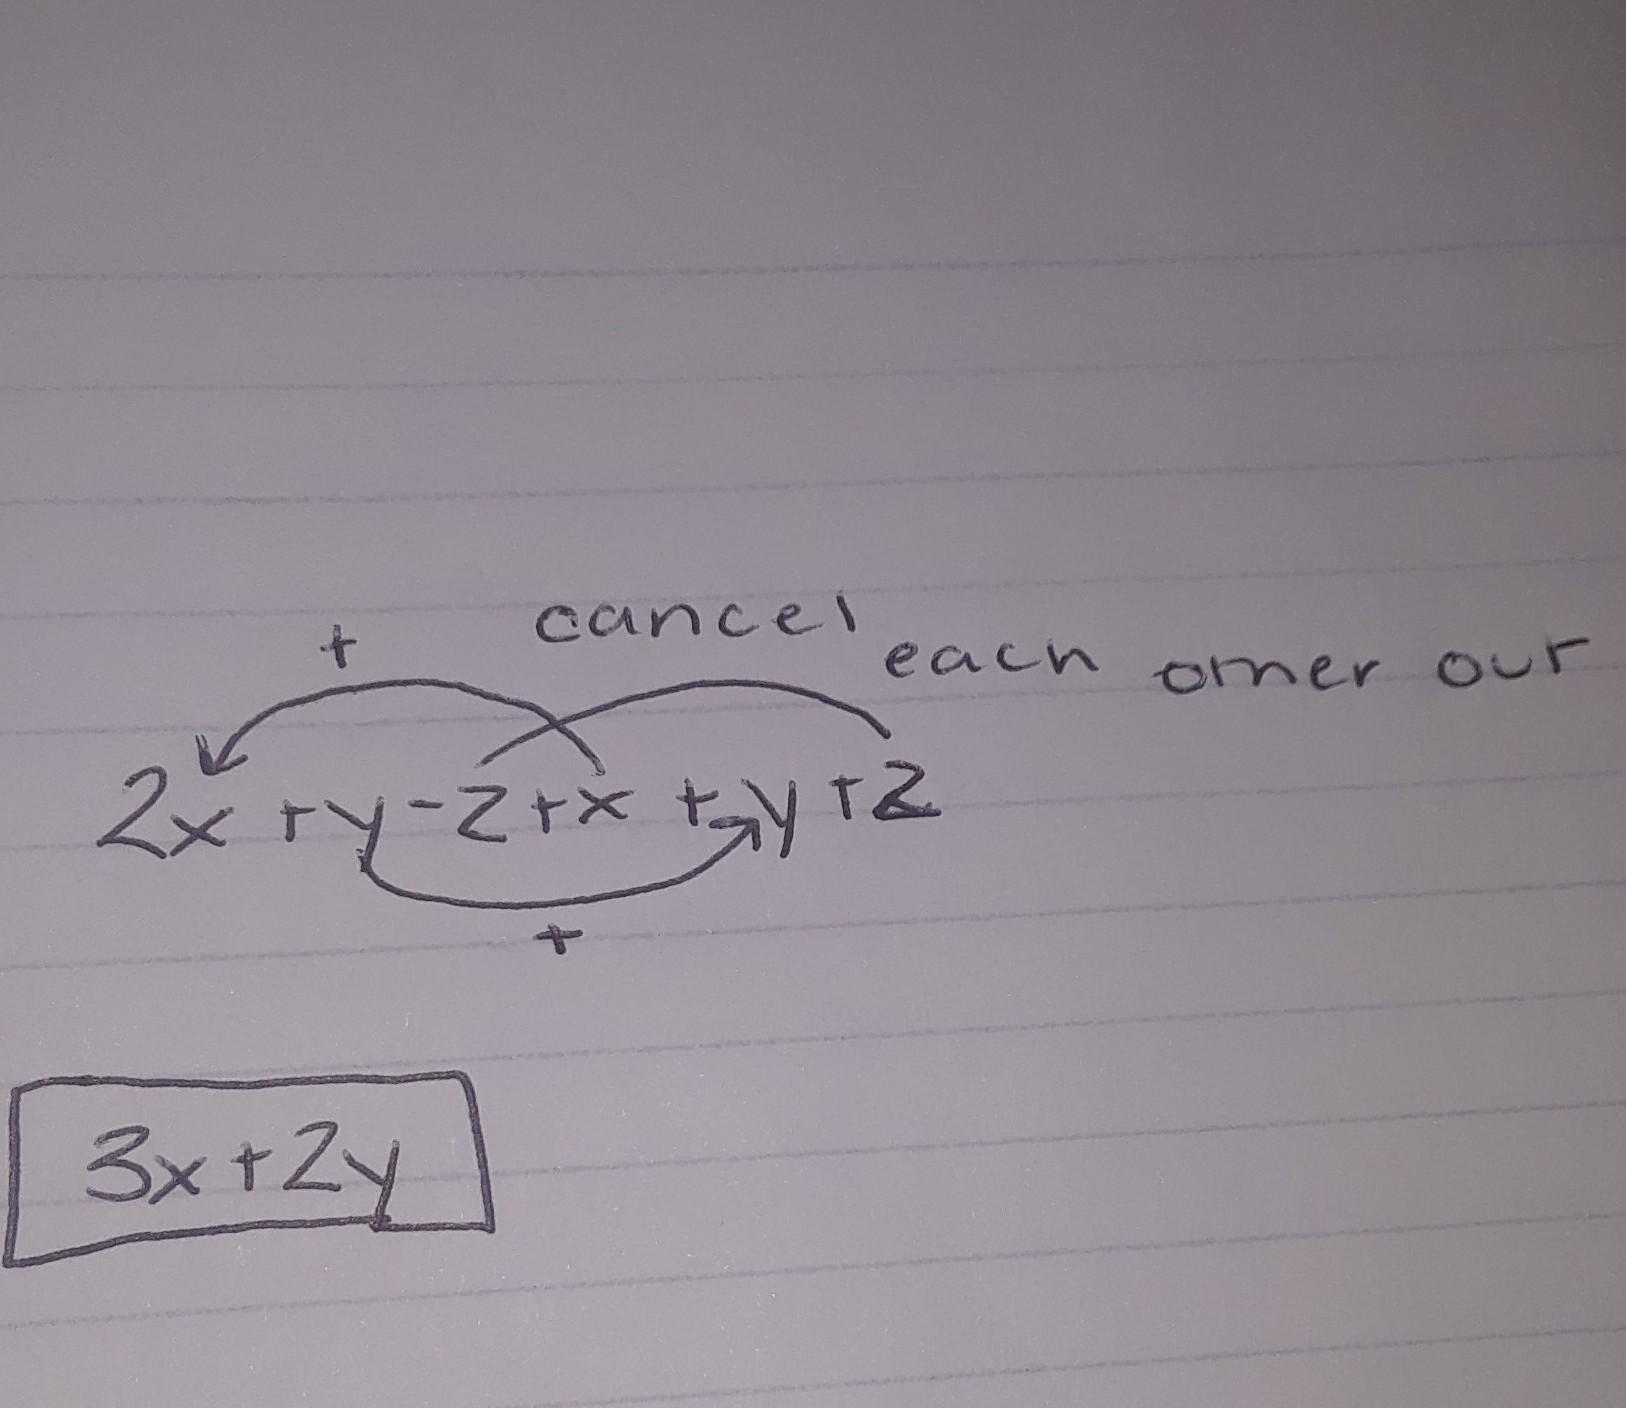 + cancel each other out
2x + y - z + x + y + z
+
3x + 2y